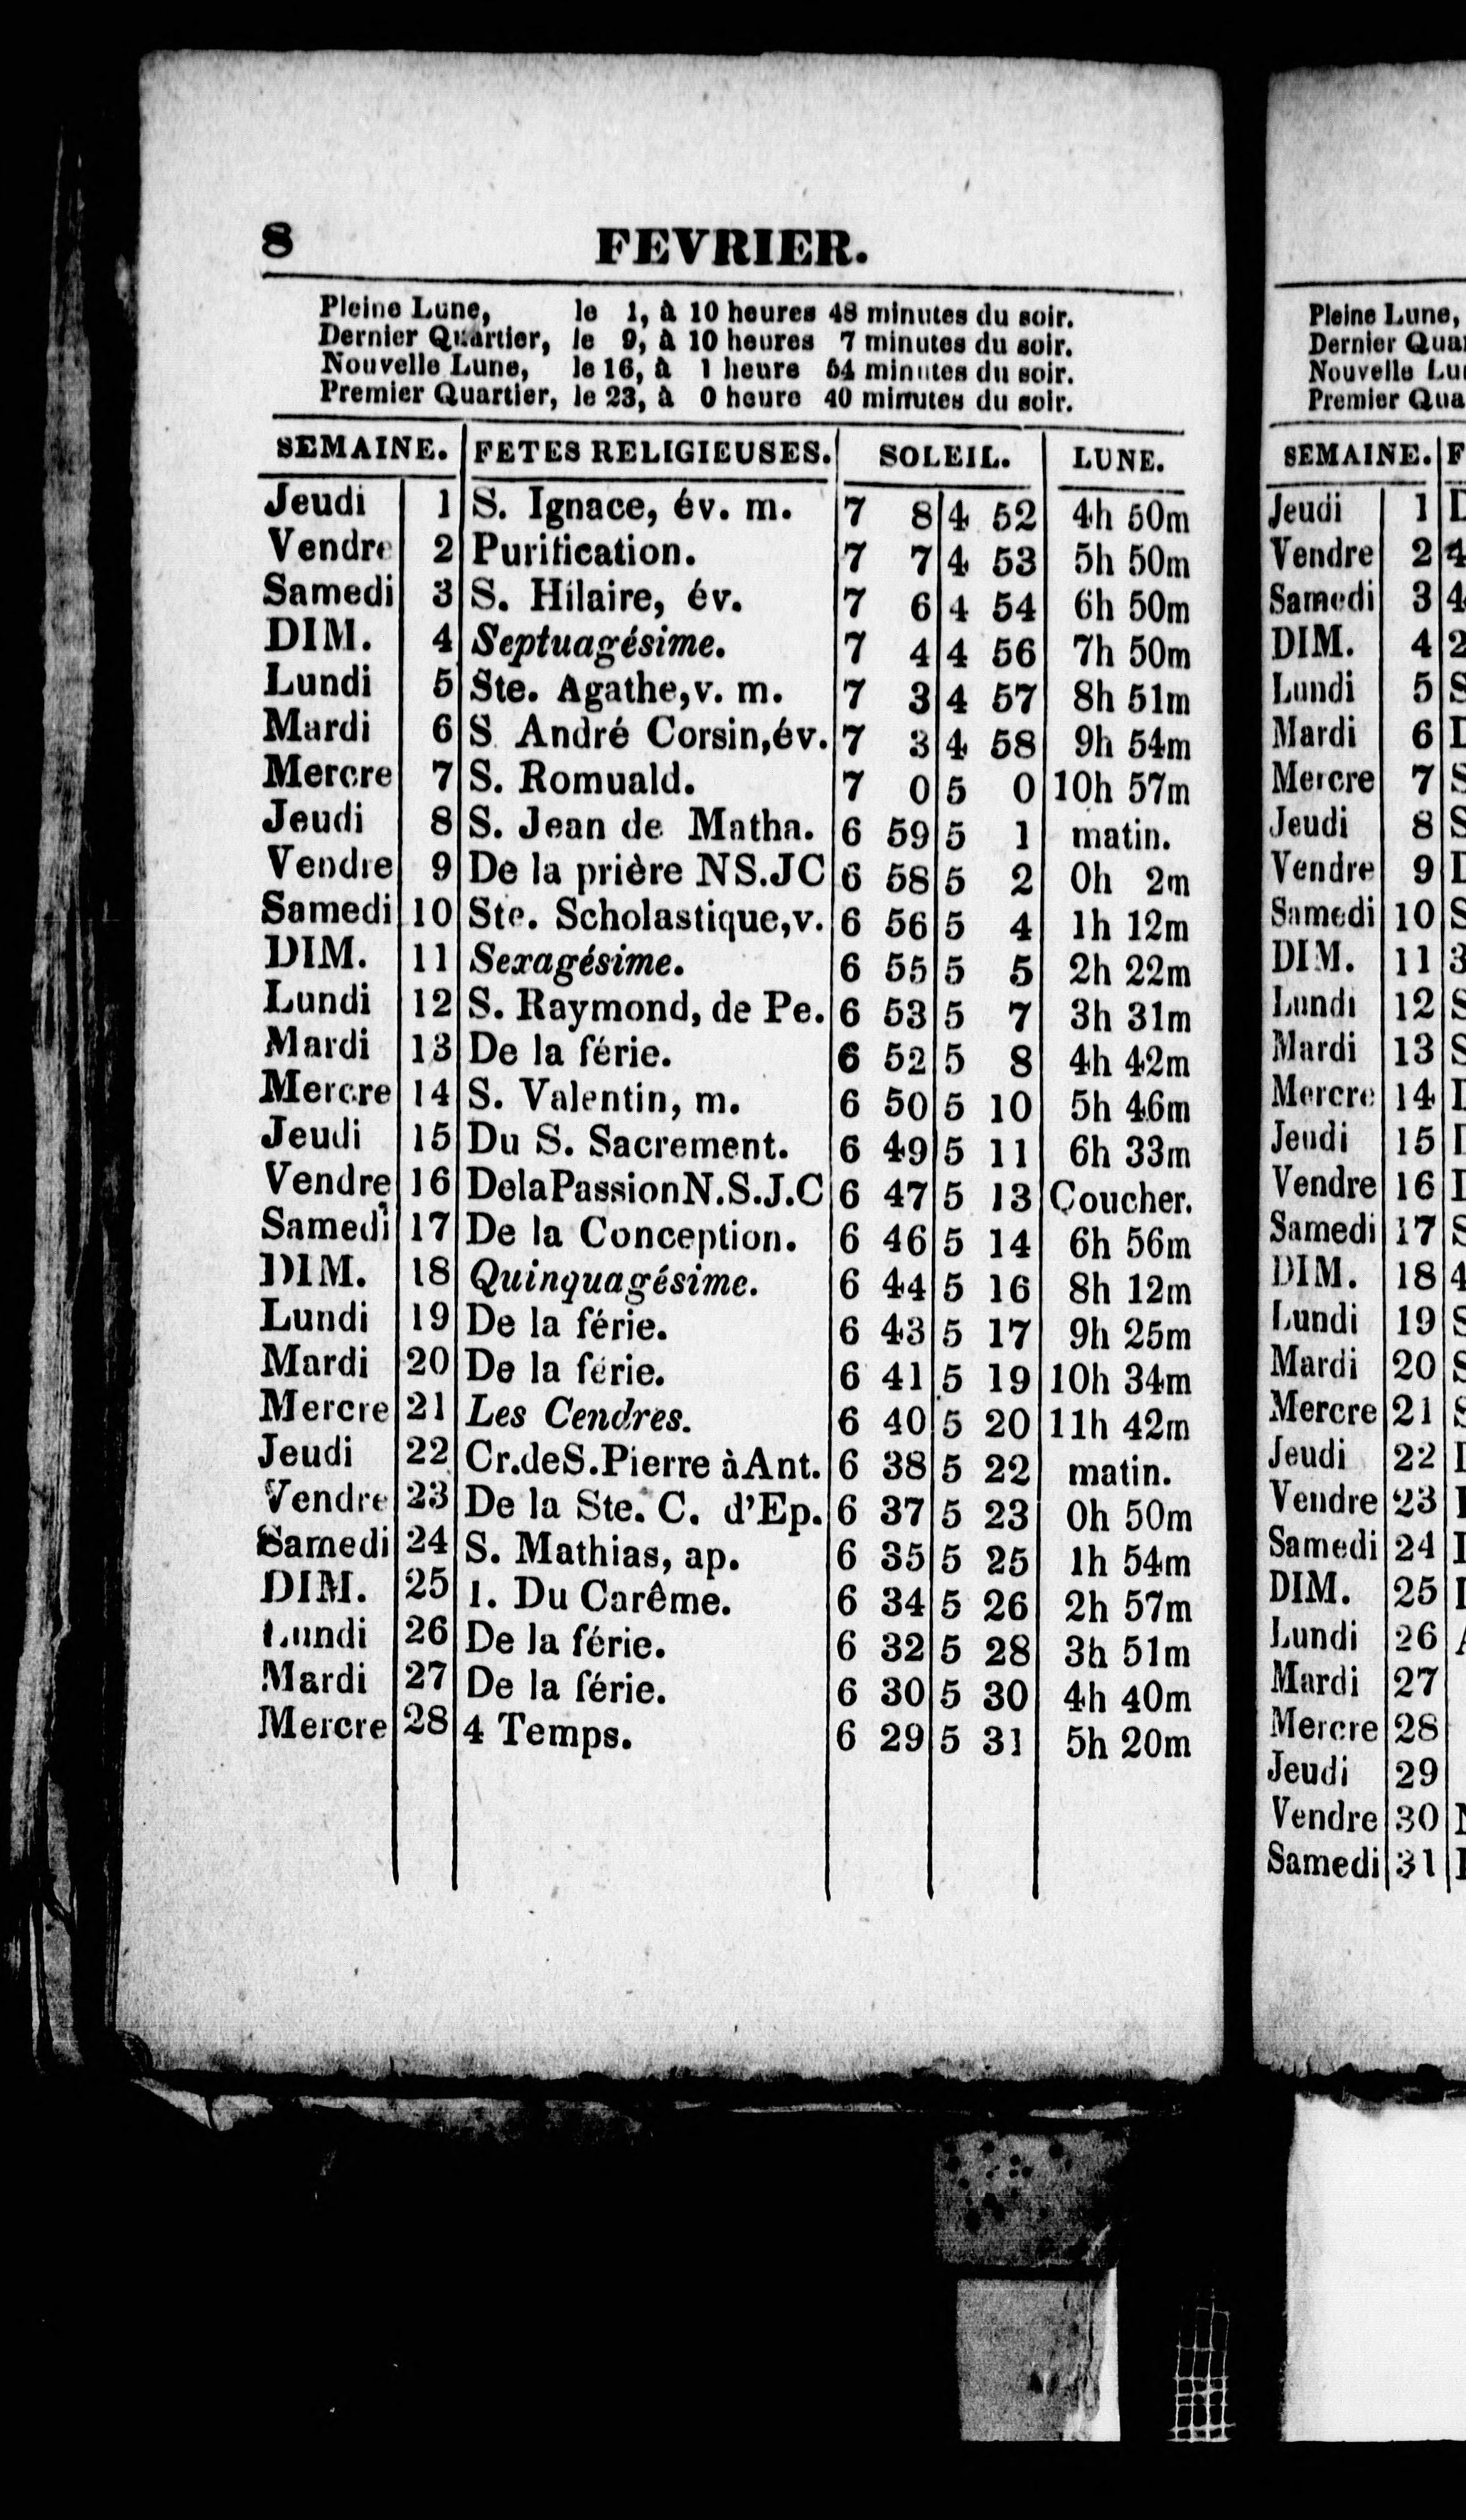 8 FEVRIER.
Pleine Lune, le 1, à 10 heures 48 minutes du soir.
Dernier Quartier, le 9, à 10 heures 7 minutes du soir.
Nouvelle Lune, le 16, à 1 heure 54 minutes du soir.
Premier Quartier, le 23, à 0 heure 40 minutes du soir.
SEMAINE. FETES RELIGIEUSES. SOLEIL. LUNE.
Jeudi 1 S. Ignace, év. m. 7 8 4 52 4h 50m
Vendre 2 Purification. 7 7 4 53 5h 50m
Samedi 3 S. Hilaire, év. 7 6 4 54 6h 50m
DIM. 4 Septuagésime. 7 4 4 56 7h 50m
Lundi 5 Ste. Agathe,v. m. 7 3 4 57 8h 51m
Mardi 6 S André Corsin,év. 7 3 4 58 9h 54m
Mercre 7 S. Romuald. 7 0 5 0 10h 57m
Jeudi 8 S. Jean de Matha. 6 59 5 1 matin.
Vendre 9 De la prière NS.JC 6 58 5 2 0h 2m
Samedi 10 Ste. Scholastique,v. 6 56 5 4 1h 12m
DIM. 11 Sexagésime. 6 55 5 5 2h 22m
Lundi 12 S. Raymond, de Pe. 6 53 5 7 3h 31m
Mardi 13 De la férie. 6 52 5 8 4h 42m
Mercre 14 S. Valentin, m. 6 50 5 10 5h 46m
Jeudi 15 Du S. Sacrement. 6 49 5 11 6h 33m
Vendre 16 DelaPassionN.S.J.C 6 47 5 13 Coucher.
Samedi 17 De la Conception. 6 46 5 14 6h 56m
DIM. 18 Quinquagésime. 6 44 5 16 8h 12m
Lundi 19 De la férie. 6 43 5 17 9h 25m
Mardi 20 De la férie. 6 41 5 19 10h 34m
Mercre 21 Les Cendres. 6 40 5 20 11h 42m
Jeudi 22 Cr.deS.Pierre àAnt. 6 38 5 22 matin.
Vendre 23 De la Ste. C. d'Ep. 6 37 5 23 0h 50m
Samedi 24 S. Mathias, ap. 6 35 5 25 1h 54m
DIM. 25 1. Du Carême. 6 34 5 26 2h 57m
Lundi 26 De la férie. 6 32 5 28 3h 51m
Mardi 27 De la férie. 6 30 5 30 4h 40m
Mercre 28 4 Temps. 6 29 5 31 5h 20m
Pleine Lune,
Dernier
Nouvelle
Premier
SEMAINE.
Jeudi 1
Vendre 2
Samedi 3
DIM. 4
Lundi 5
Mardi 6
Mercre 7
Jeudi 8
Vendre 9
Samedi 10
DIM. 11
Lundi 12
Mardi 13
Mercre 14
Jeudi 15
Vendre 16
Samedi 17
DIM. 18
Lundi 19
Mardi 20
Mercre 21
Jeudi 22
Vendre 23
Samedi 24
DIM. 25
Lundi 26
Mardi 27
Mercre 28
Jeudi 29
Vendre 30
Samedi 31